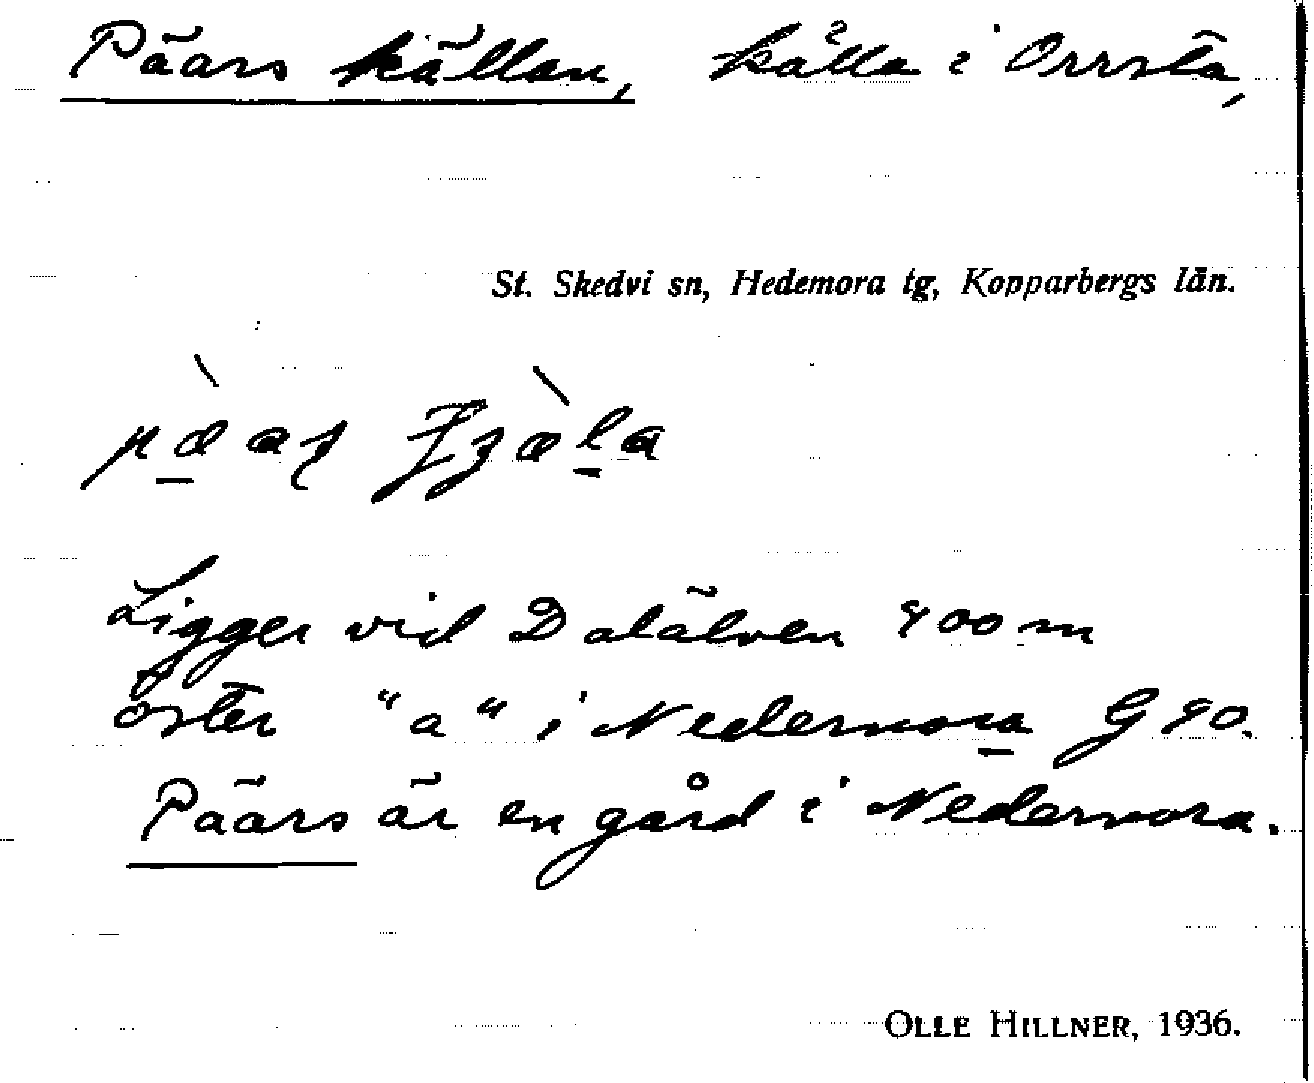 Päars källan, källa i Orrsta,
St. Skedvi sn, Hedemora tg, Kopparbergs län.
Ligger vid Dalälven 400 m
öster "a" i Nedernora G 90.
Päärs är en gård i Nedernora.
OLLE HILLNER, 1936.